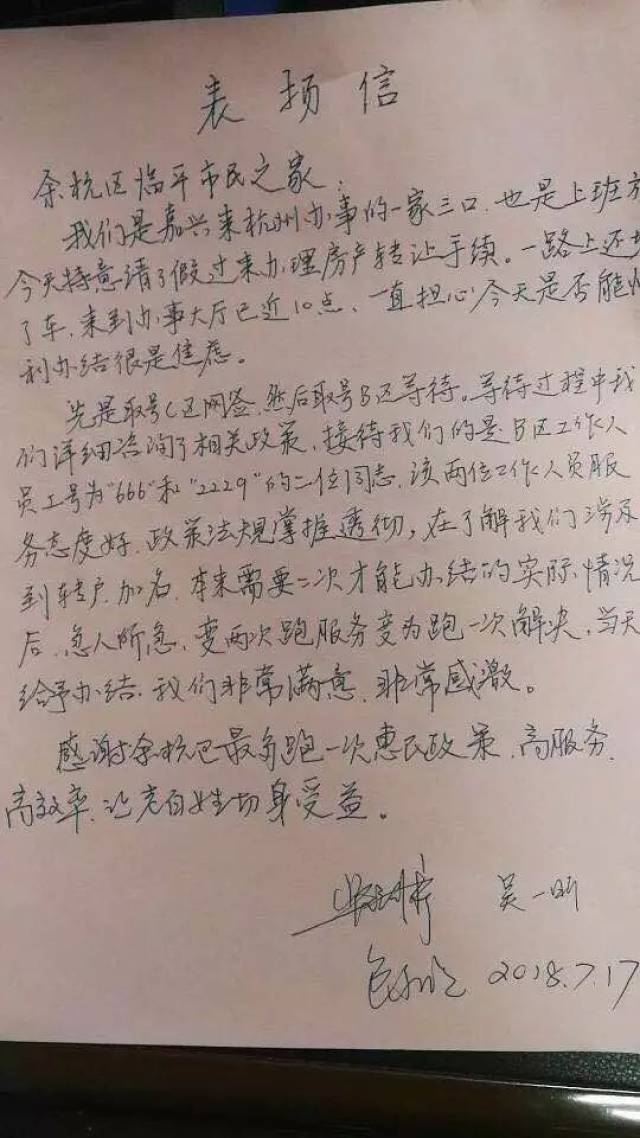 表扬信
余杭区临平市民之家:
我们是嘉兴来杭州办事的一家三口,也是上班
今天特意请了假过来办理房产转让手续。一路上还
了车,来到办事大厅已近10点、一直担心今天是否能
利办结很是焦虑。
先是取号C区网签,然后取号B区等待。等待过程中我
们详细咨询了相关政策,接待我们的是B区工作人
员工号为"666"和"2229"的二位同志,该两位工作人员服
务态度好,政策法规掌握透彻,在了解我们涉及
到转户,加名,本来需要二次才能办结的实际情况
后,急人所急,变两次跑服务变为跑一次解决,当天
给予办结,我们非常满意,非常感激。
感谢余杭区最多跑一次惠民政策,高服务,
高效率,让老百姓切身受益。
吴一昕
2018.7.17